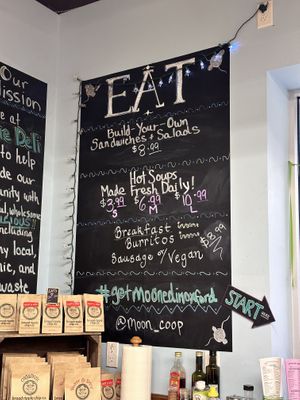 Our
Mission
e at
e Deli
to help
de our
unity with
including
ny local,
nic, and
waste
EAT
Build-Your-Own
Sandwiches + Salads
$8.99
Hot Soups
Made Fresh Daily!
$3.99 $6.99 $10.99
S M
Breakfast
Burritos $8.99
Sausage or Vegan
#getmoonedinoxford
@moon_coop
START